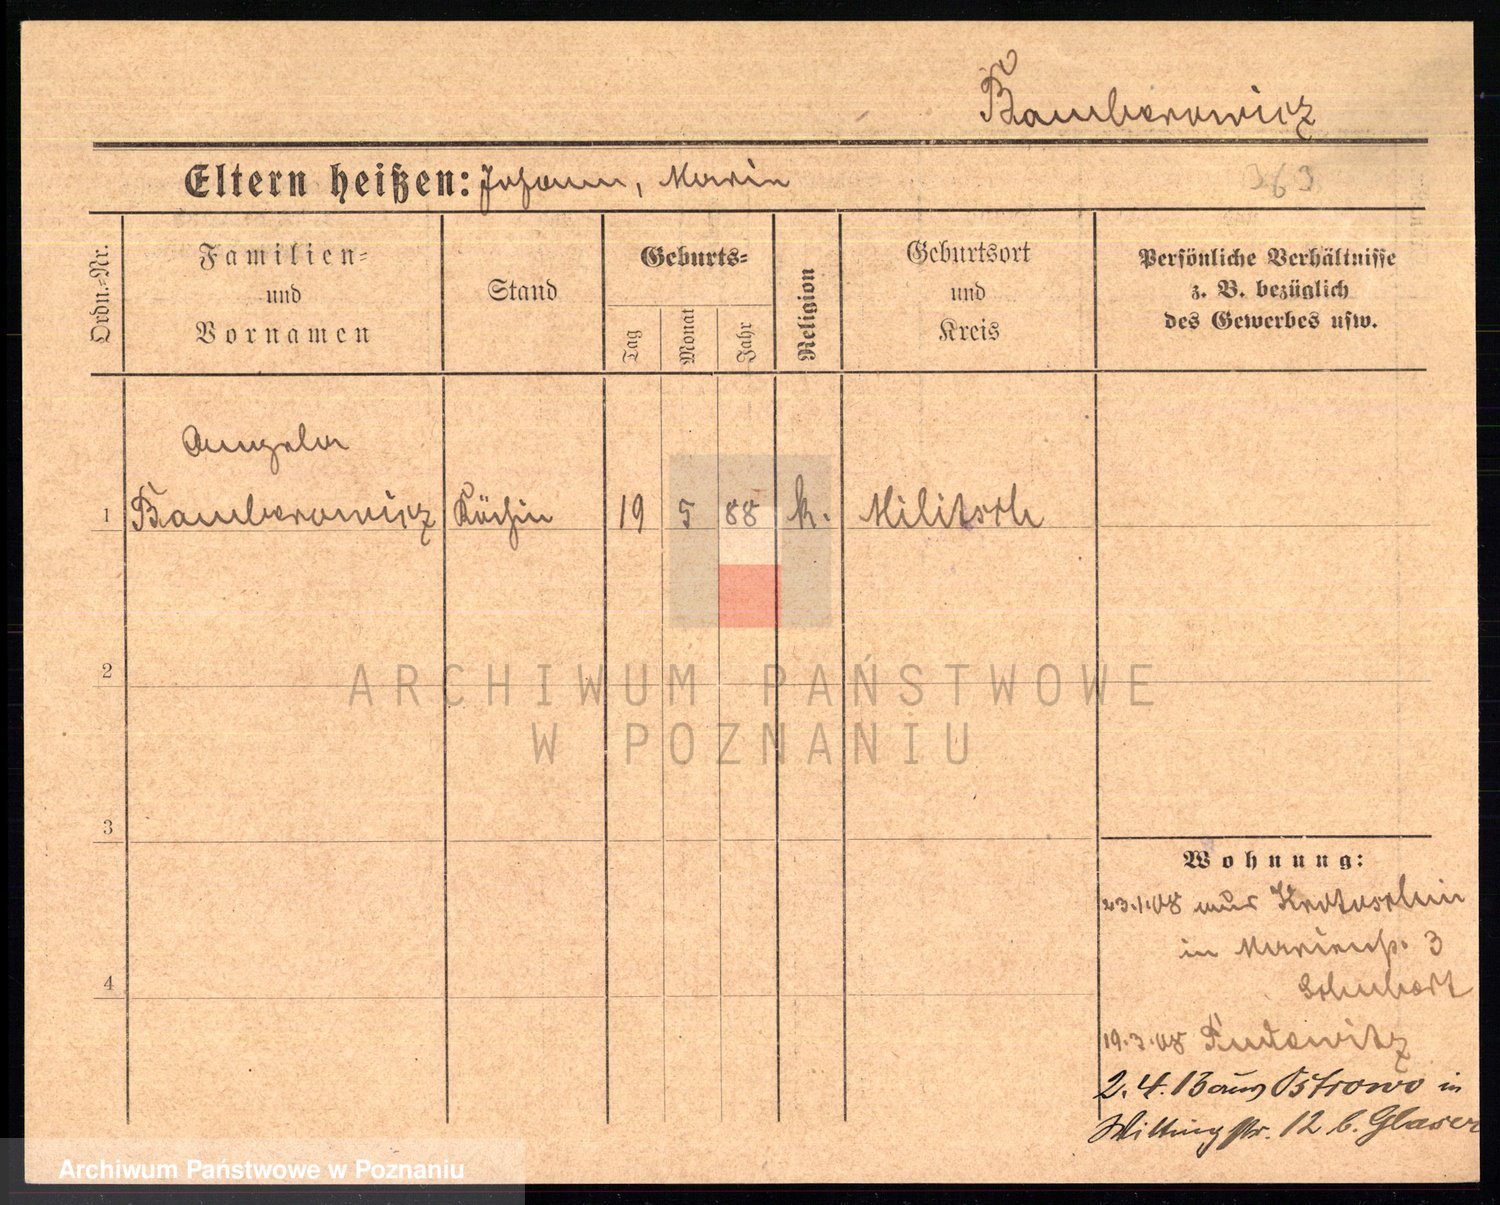 Bamberowicz
Eltern heißen: Johann, Maria
363
Ordn.-Nr.
Familien-
und
Vornamen
Stand
Geburts-
Tag
Monat
Jahr
Religion
Geburtsort
und
Kreis
Persönliche Verhältnisse
z. B. bezüglich
des Gewerbes usw.
Angela
1 Bamberowicz Köchin 19 5 88 k. Militsch
2
ARCHIWUM PAŃSTWOWE
W POZNANIU
3
4
Wohnung:
23.1.08 aus Krotoschin
in Marienstr. 3
Schubert
19.3.08 Pudewitz
2.4.13 aus Ostrowo in
Wittingstr. 12 b. Glaser
Archiwum Państwowe w Poznaniu